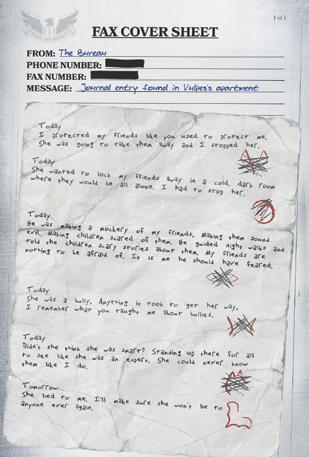 1 of 1
FAX COVER SHEET
FROM: The Bureau
PHONE NUMBER:
FAX NUMBER:
MESSAGE: Journal entry found in Vulpes's apartment
Today
I protected my friends like you used to protect me.
She was going to take them away and I stopped her.
Today
She wanted to lock my friends away in a cold, dark room
where they would be all alone. I had to stop her.
Today
He was making a mockery of my friends. Making them sound
evil. Making children scared of them. He guided night walks and
told the children scary stories about them. My friends are
nothing to be afraid of. It is me he should have feared.
Today
She was a bully. Anything it took to get her way.
I remember what you taught me about bullies.
Today
Didn't she think she was smart? Standing up there for all
to see like she was an expert. She could never know
them like I do.
Tomorrow
She lied to me. I'll make sure she won't be to
anyone ever again.